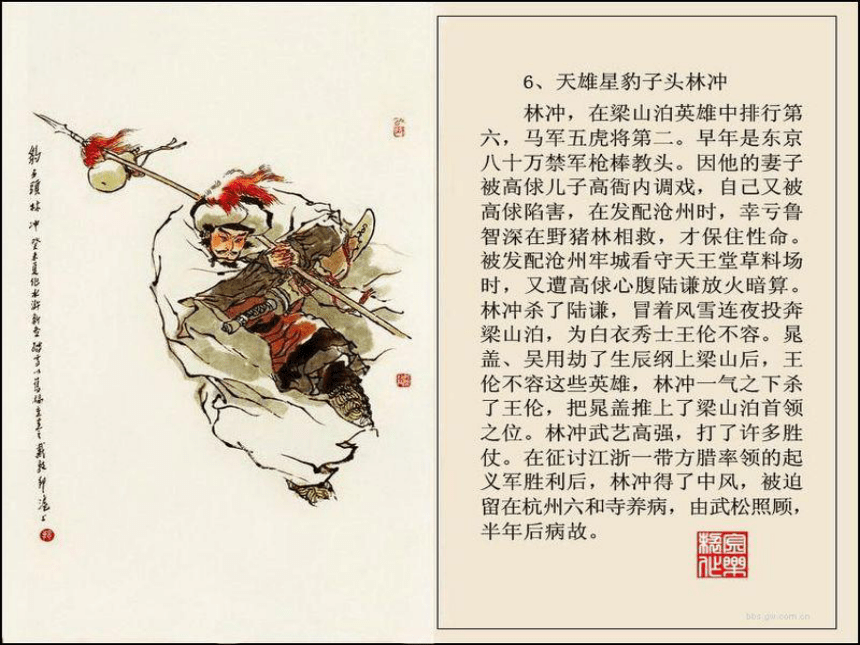 6、天雄星豹子头林冲
林冲，在梁山泊英雄中排行第
六，马军五虎将第二。早年是东京
八十万禁军枪棒教头。因他的妻子
被高俅儿子高衙内调戏，自己又被
高俅陷害，在发配沧州时，幸亏鲁
智深在野猪林相救，才保住性命。
被发配沧州牢城看守天王堂草料场
时，又遭高俅心腹陆谦放火暗算。
林冲杀了陆谦，冒着风雪连夜投奔
梁山泊，为白衣秀士王伦不容。晁
盖、吴用劫了生辰纲上梁山后，王
伦不容这些英雄，林冲一气之下杀
了王伦，把晁盖推上了梁山泊首领
之位。林冲武艺高强，打了许多胜
仗。在征讨江浙一带方腊率领的起
义军胜利后，林冲得了中风，被迫
留在杭州六和寺养病，由武松照顾，
半年后病故。
豹子头林冲
bbs.gw.com.cn